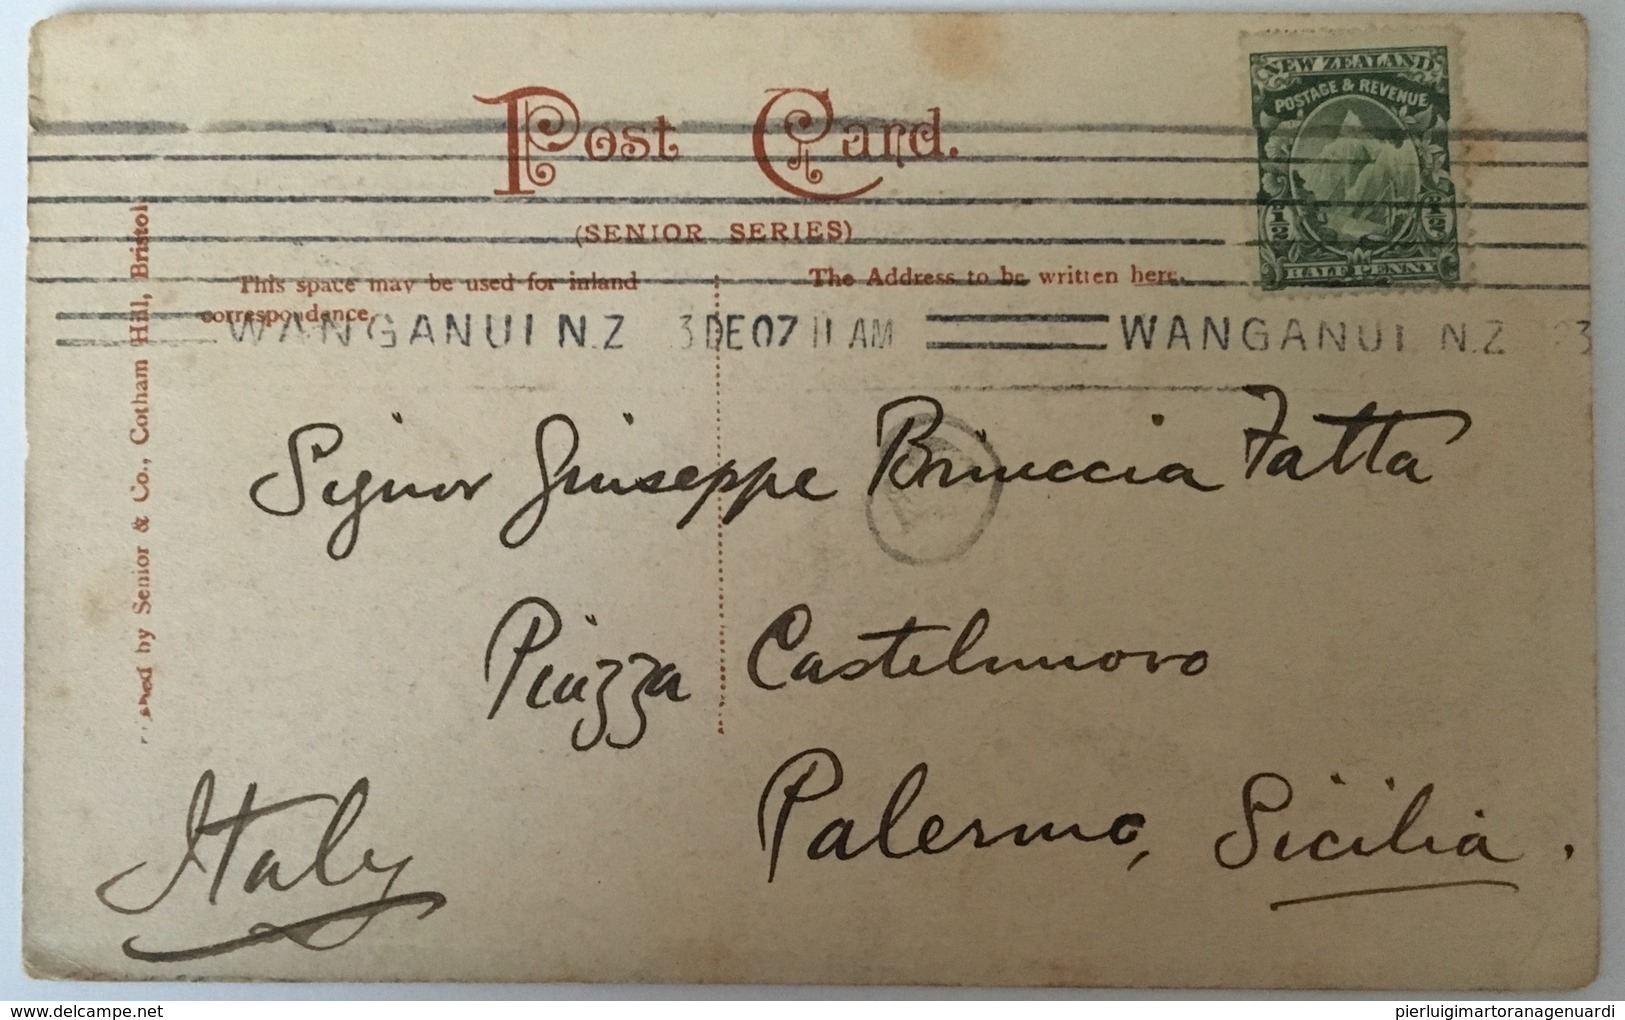 NEW ZEALAND
POSTAGE & REVENUE
1/2 1/2
HALF PENNY
Post Card.
(SENIOR SERIES)
This space may be used for inland
correspondence.
The Address to be written here.
WANGANUI N.Z 3 DE 07 11 AM WANGANUI N.Z 23
by Senior & Co., Cotham Hill, Bristol.
Signor Giuseppe Briuccia Fatta
Piazza Castelnuovo
Palermo, Sicilia.
Italy
www.delcampe.net
pierluigimartoranagenuardi